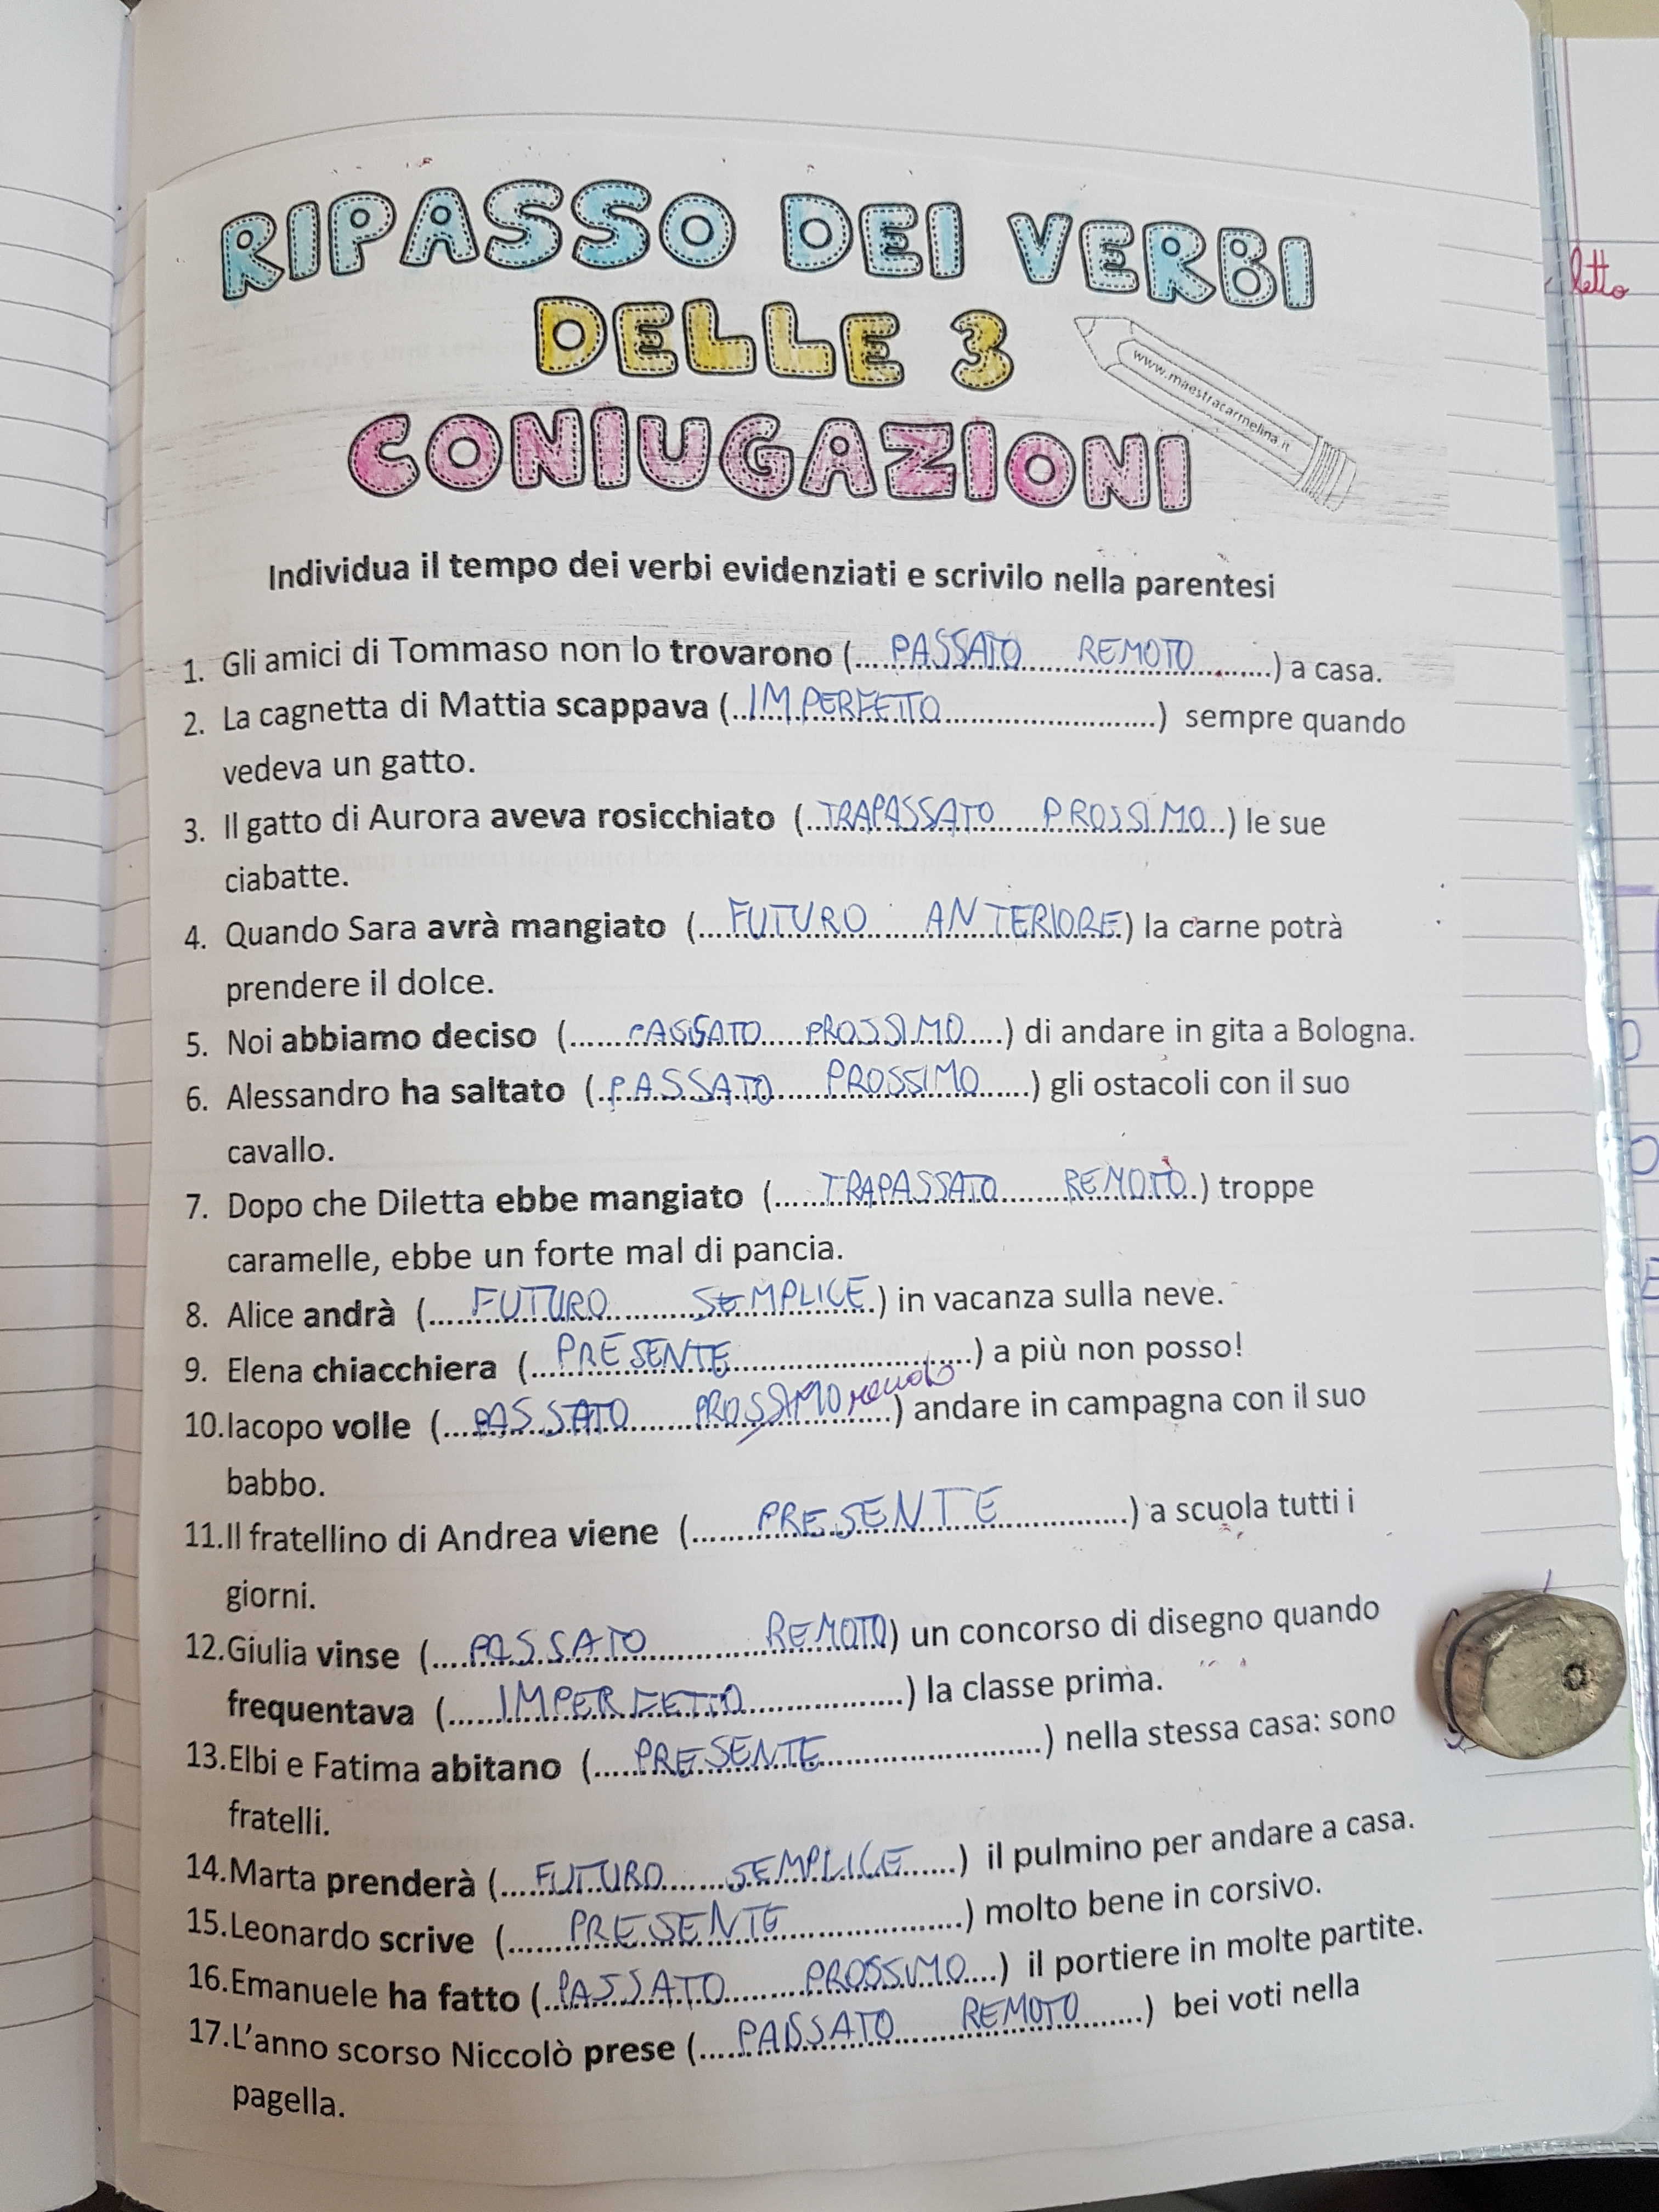 RIPASSO DEI VERBI
DELLE 3
CONIUGAZIONI
www.maestracarmelina.it
letto
Individua il tempo dei verbi evidenziati e scrivilo nella parentesi
1. Gli amici di Tommaso non lo trovarono (... PASSATO REMOTO ...) a casa.
2. La cagnetta di Mattia scappava (... IMPERFETTO ...) sempre quando
vedeva un gatto.
3. Il gatto di Aurora aveva rosicchiato (... TRAPASSATO PROSSIMO ...) le sue
ciabatte.
4. Quando Sara avrà mangiato (... FUTURO ANTERIORE) la carne potrà
prendere il dolce.
5. Noi abbiamo deciso (... PASSATO PROSSIMO ...) di andare in gita a Bologna.
6. Alessandro ha saltato (... PASSATO PROSSIMO ...) gli ostacoli con il suo
cavallo.
7. Dopo che Diletta ebbe mangiato (... TRAPASSATO REMOTO ...) troppe
caramelle, ebbe un forte mal di pancia.
8. Alice andrà (... FUTURO SEMPLICE ...) in vacanza sulla neve.
9. Elena chiacchiera (... PRESENTE ...) a più non posso!
10. Iacopo volle (... PASSATO PROSSIMO remoto ...) andare in campagna con il suo
babbo.
11. Il fratellino di Andrea viene (... PRESENTE ...) a scuola tutti i
giorni.
12. Giulia vinse (... PASSATO REMOTO) un concorso di disegno quando
frequentava (... IMPERFETTO ...) la classe prima.
13. Elbi e Fatima abitano (... PRESENTE ...) nella stessa casa: sono
fratelli.
14. Marta prenderà (... FUTURO SEMPLICE ...) il pulmino per andare a casa.
15. Leonardo scrive (... PRESENTE ...) molto bene in corsivo.
16. Emanuele ha fatto (... PASSATO PROSSIMO ...) il portiere in molte partite.
17. L'anno scorso Niccolò prese (... PASSATO REMOTO ...) bei voti nella
pagella.